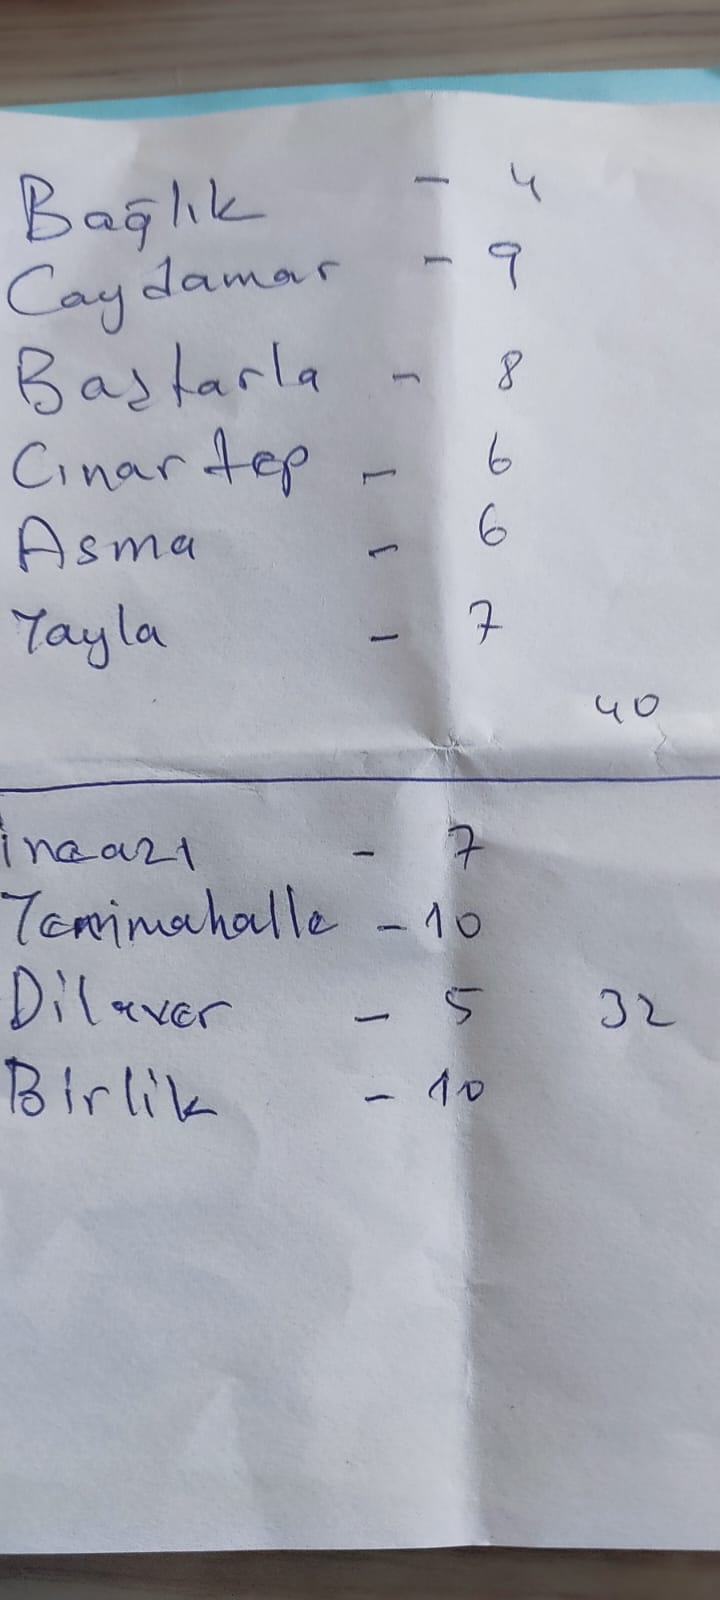 Bağlık - 4
Caydamar - 9
Baştarla - 8
Cınartep - 6
Asma - 6
Yayla - 7
40
İncazı - 7
Yenimahalle - 10
Dilaver - 5 32
Birlik - 10